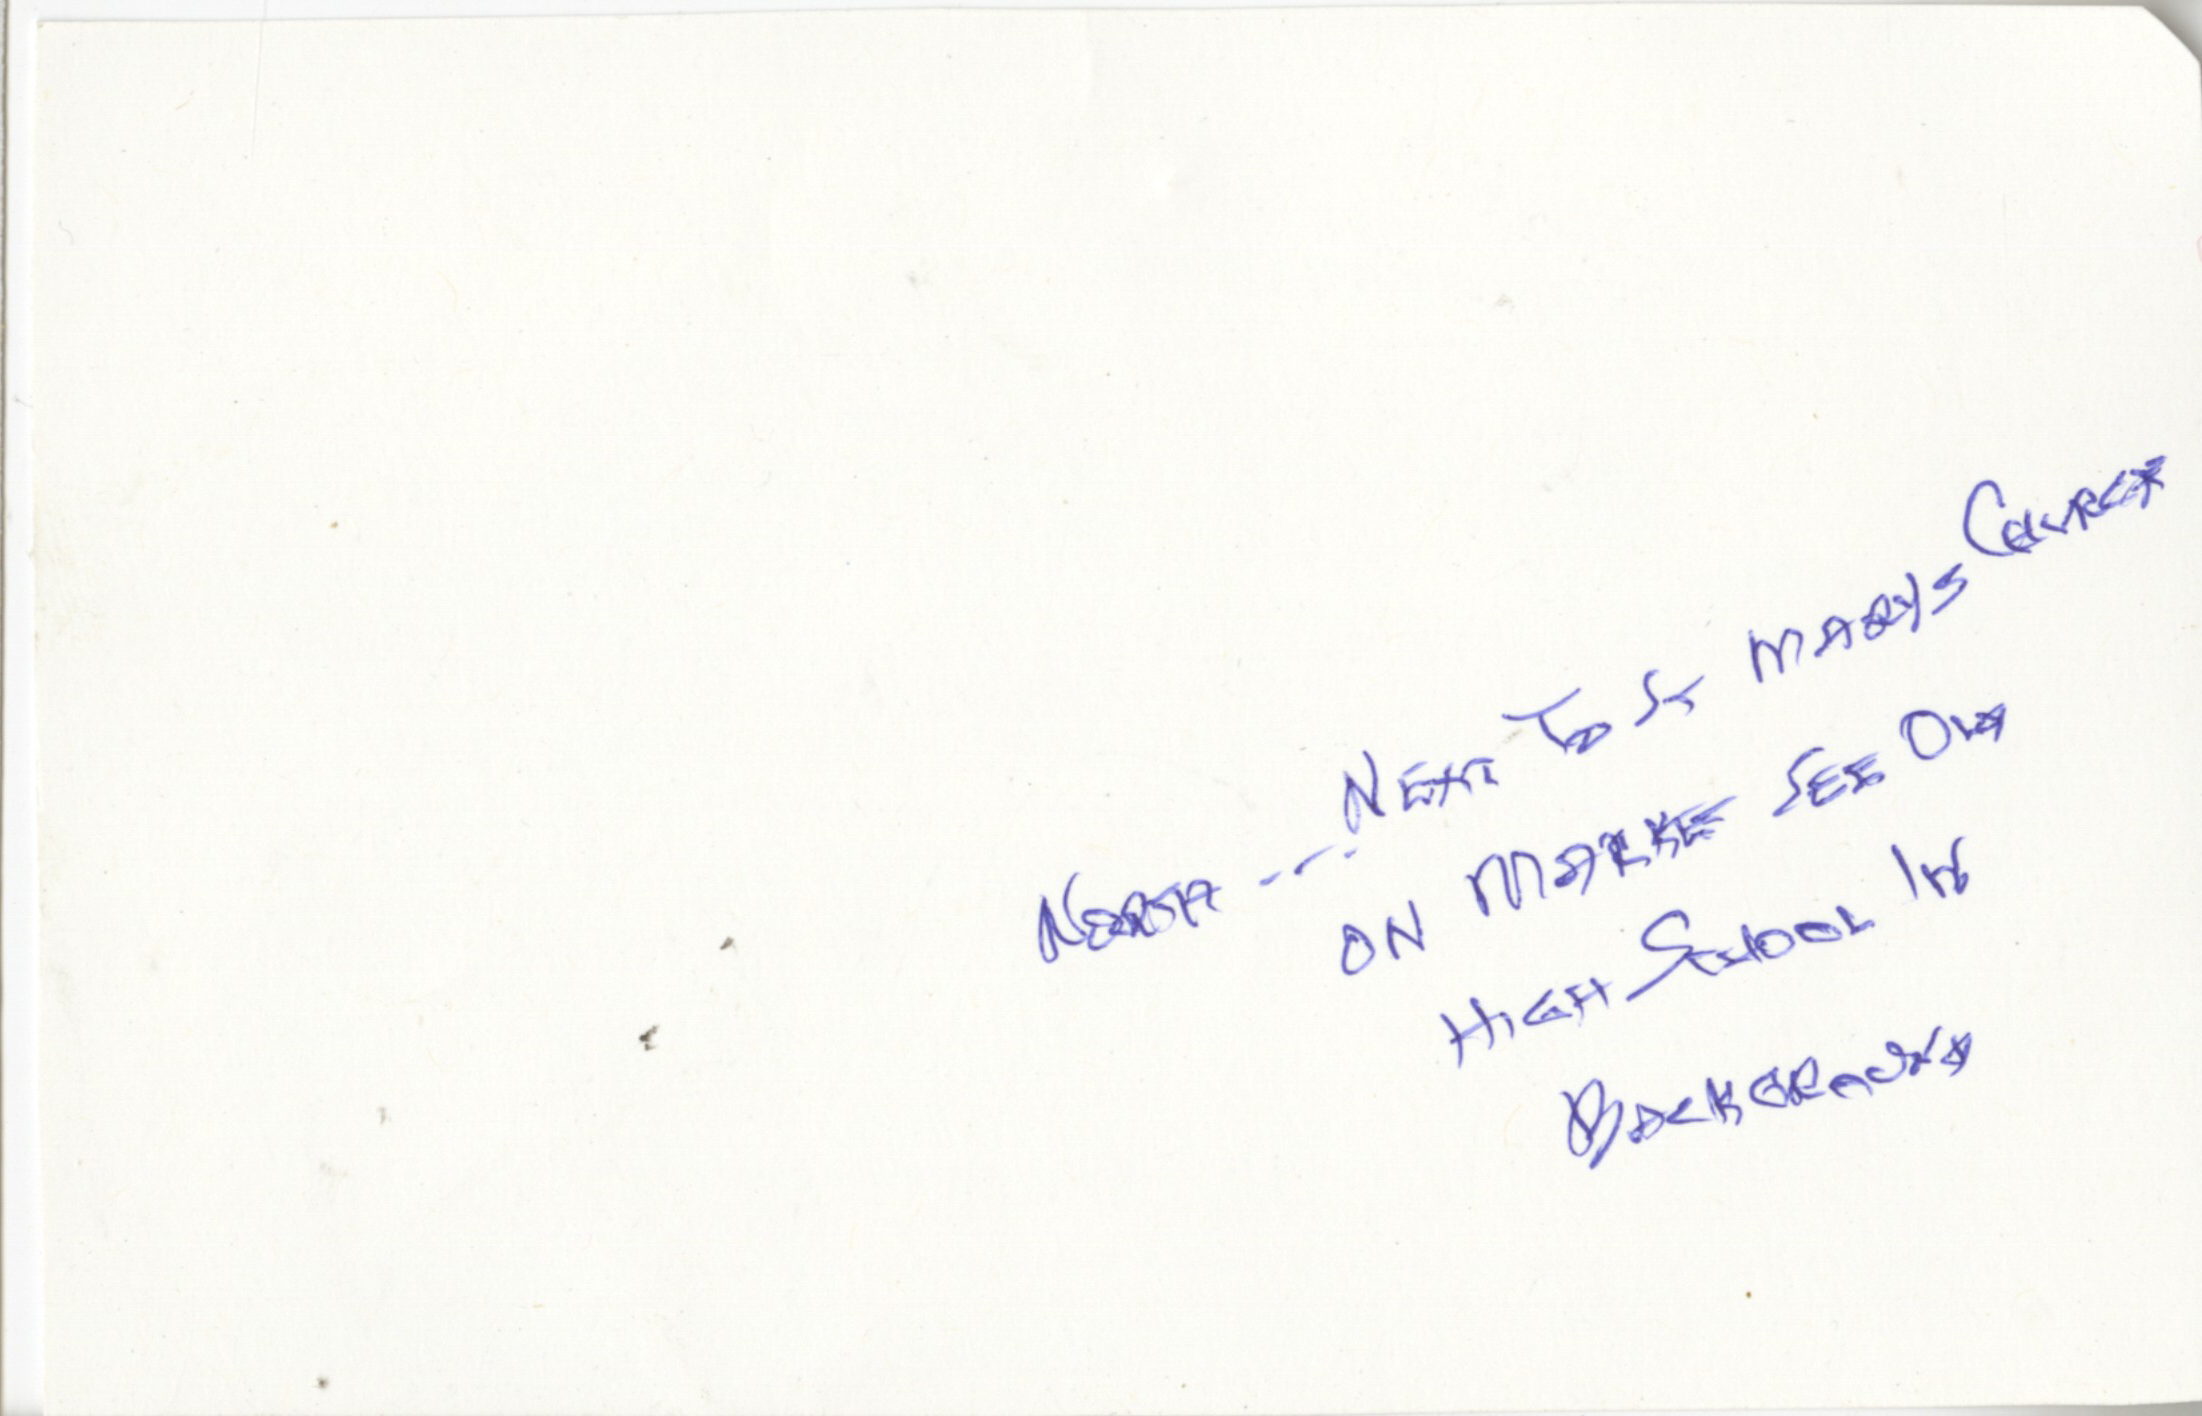 NORTH --- NEXT TO ST MARYS CHURCH
ON MARKE SEE OLD
HIGH SCHOOL IN
BACKGROUND